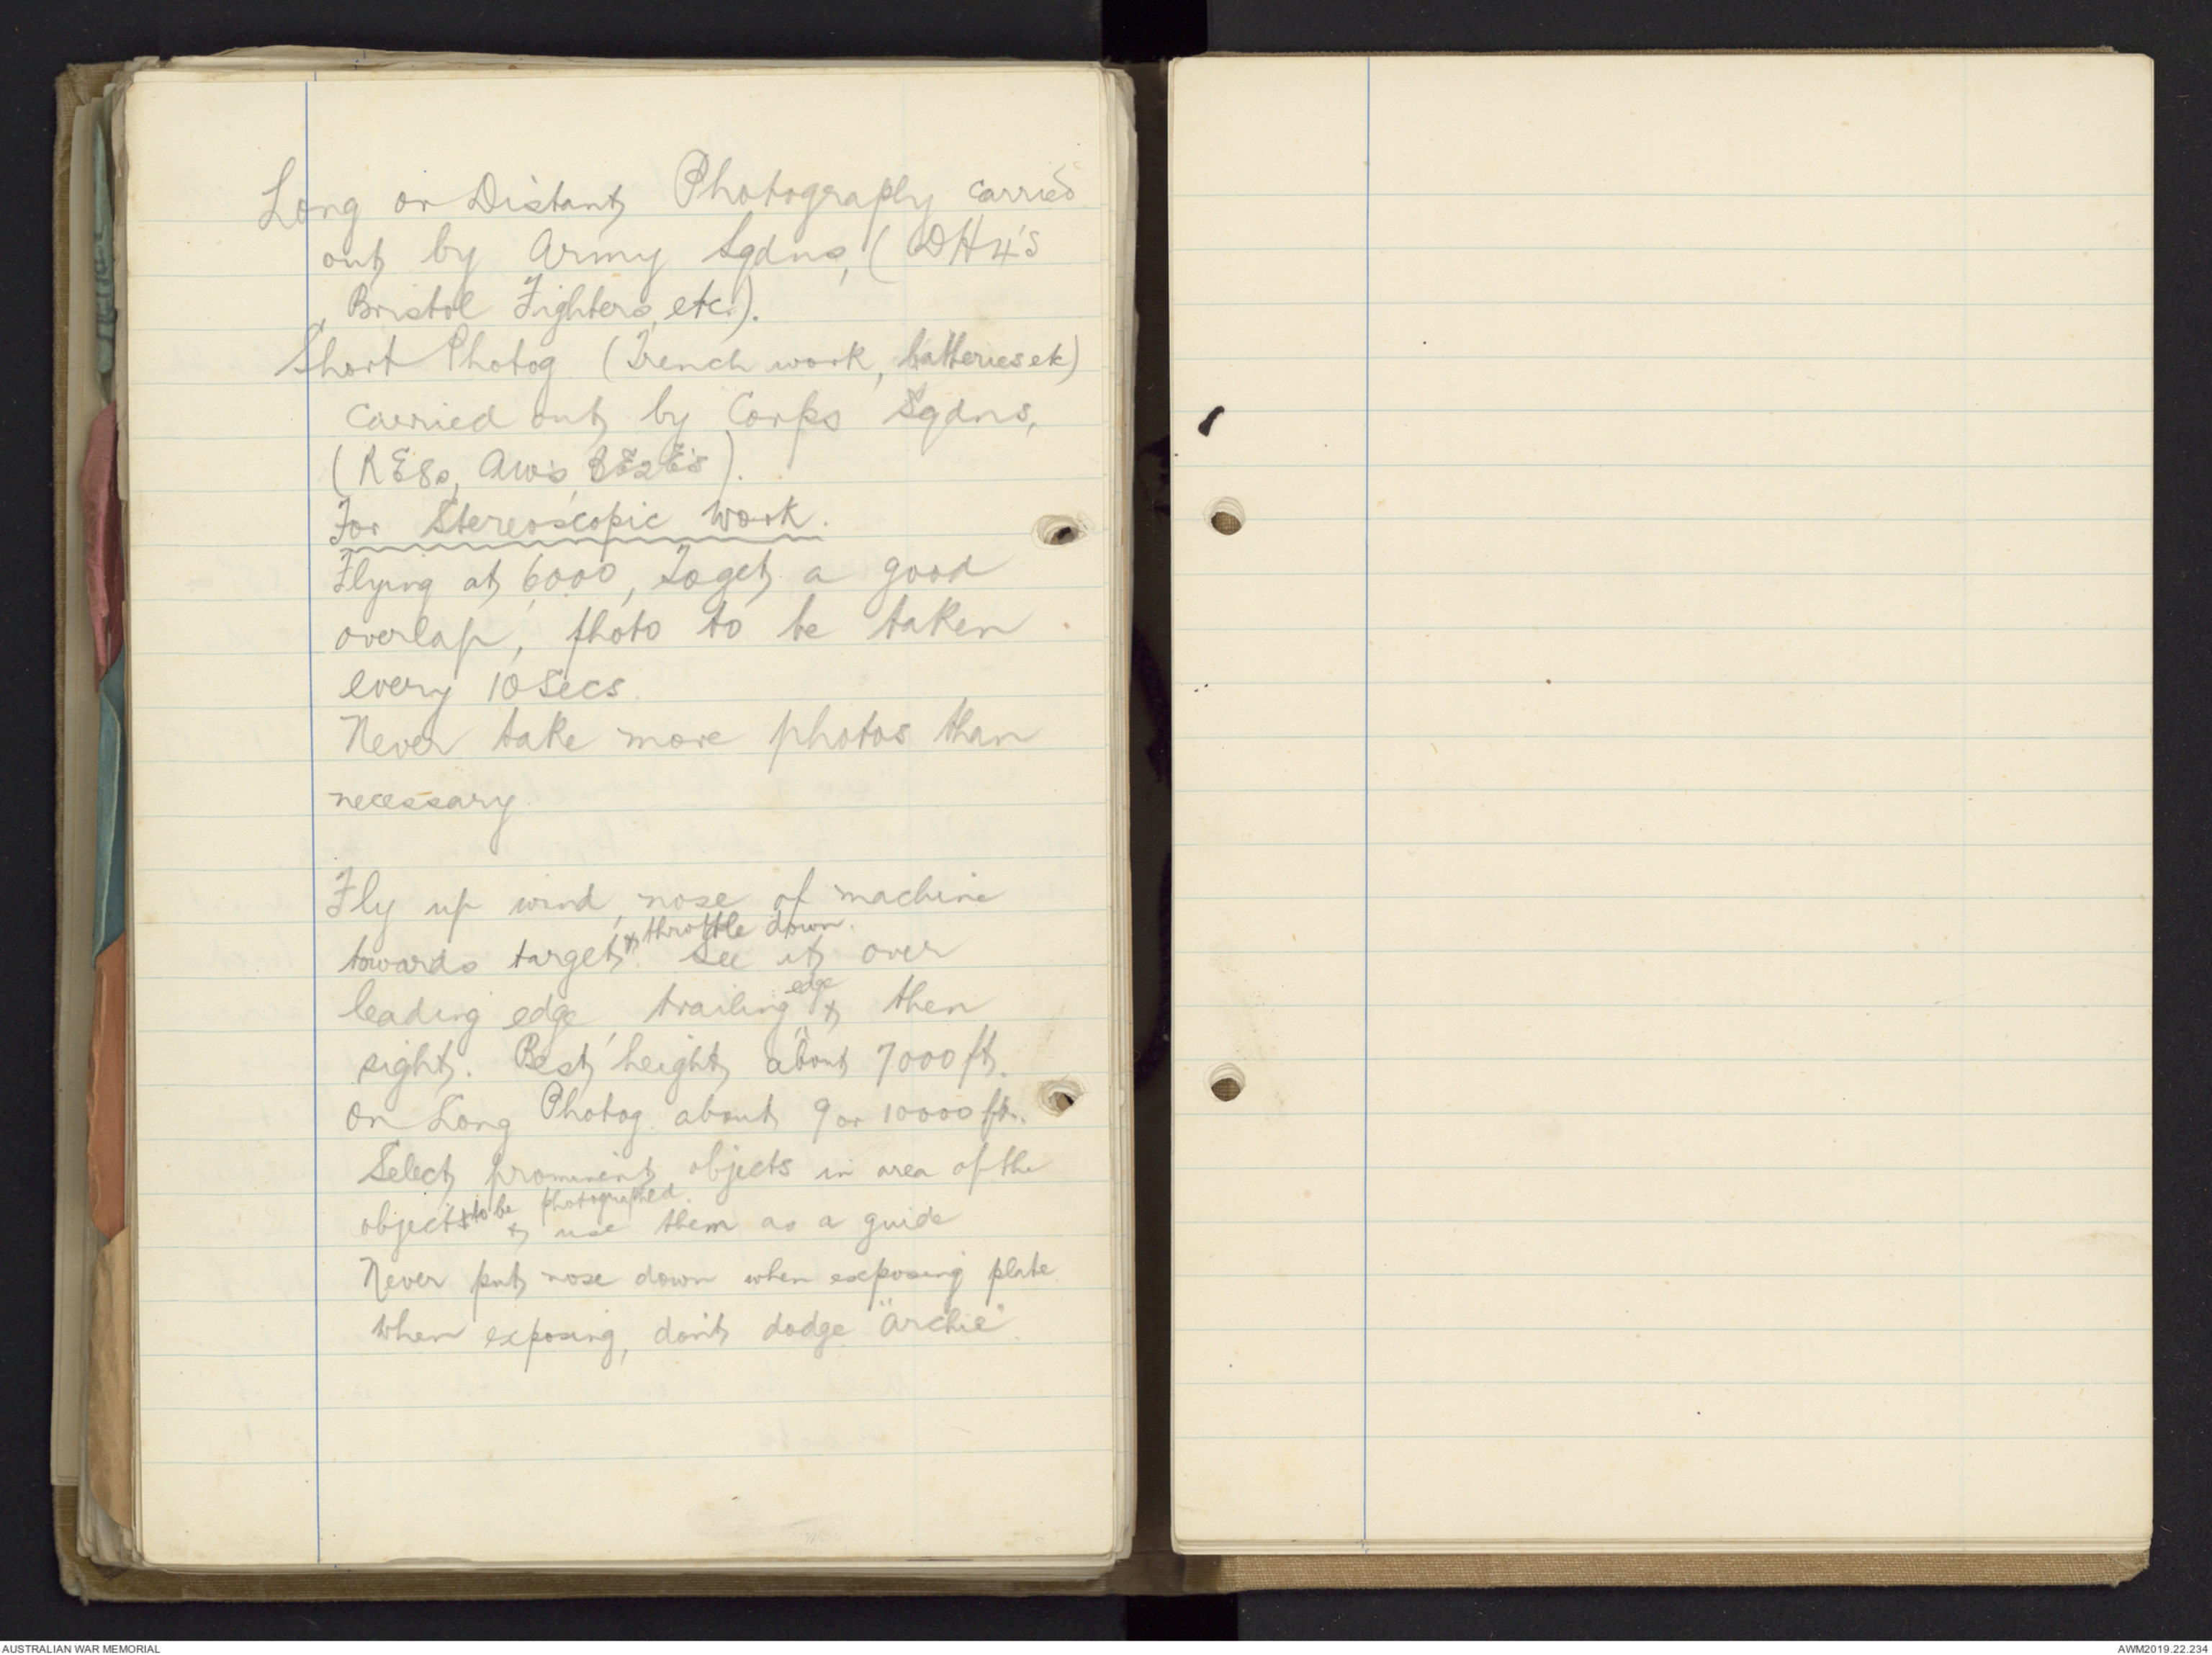 Long or Distant Photography carried
out by Army Sqdns, (DH4's
Bristol Fighters, etc.).
Short Photog (Trench work, batteries etc)
carried out by Corps Sqdns,
(RE8s, AW's, BE2E's).
For Stereoscopic Work.
Flying at 6000, To get a good
overlap, photo to be taken
every 10 Secs.
Never take more photos than
necessary
Fly up wind, nose of machine
& throttle down.
towards target. See it over
edge
leading edge, trailing & then
sight. Best height about 7000 ft.
On Long Photog. about 9 or 10000 ft.
Select prominent objects in area of the
to be photographed.
objects & use them as a guide
Never put nose down when exposing plate
When exposing, don't dodge "Archie".
AUSTRALIAN WAR MEMORIAL
AWM2019.22.234